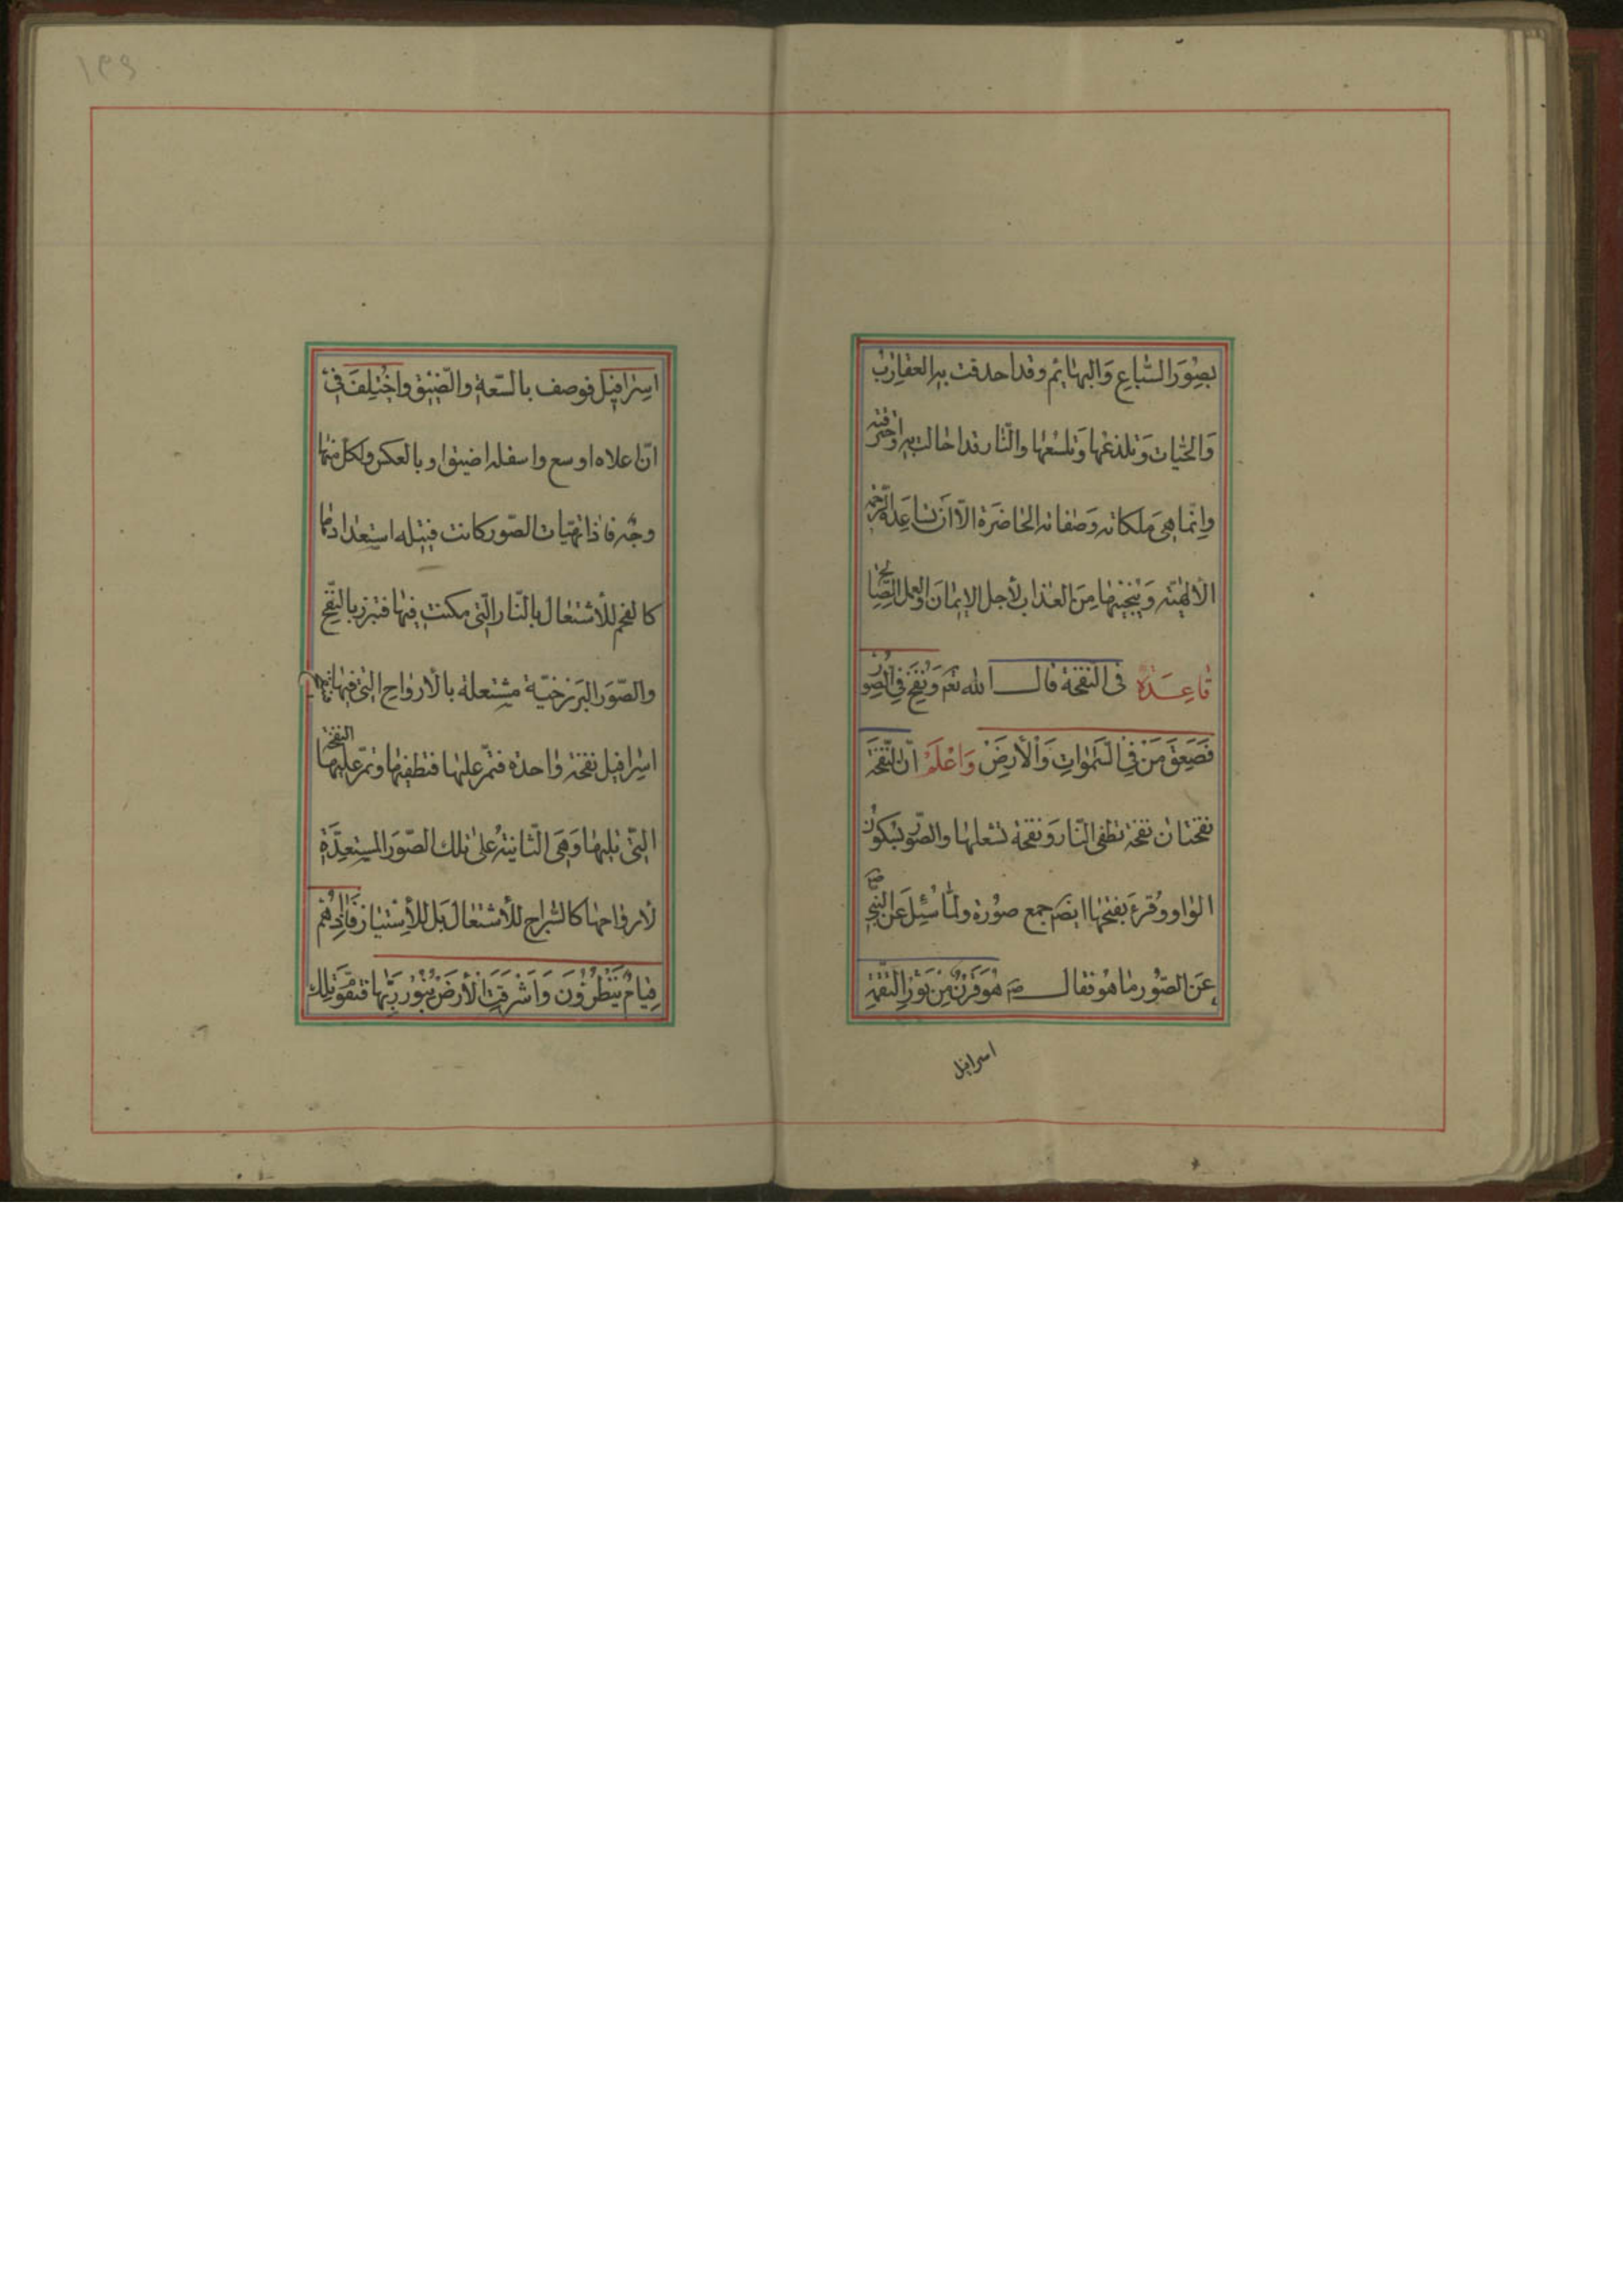 بصُوَر السّباعِ وَالبهائم وقد احدقت به العقاربُ
وَالحيّات وَتلذعها وَتلسعُها والنّار قد احالت به واحرقته
وانّما هِىَ مَلكاته وَصفاته الحاضرَة الّا أن تساعِده الرّحمة
الألهيّة وَينجيها مِنَ العذاب لأجل الإيمان وَالعمل الصّالح
قاعِدَة فى النفخة قال الله تعَ وَنُفِخَ فِى الصُّورِ
فَصَعِقَ مَنْ فِى السَّمٰواتِ وَالأرضِ وَاعْلَمْ انّ النّفخَة
نفختان نفخة تطفى النّار وَنفخة تشعلها والصّور بسكون
الواو وقُرِءَ بفتحها ايضَ جمع صُورة ولمّا سُئِلَ عَن النّبىّ ص
عَن الصُّور ما هو فقال ص هُوَ قَرنٌ مِن نُورٍ التقمَه
اسرافيل
١٤٩
اسِرافيل فوصف بالسّعة والضّيق واختلِفَ فِى
انّ اعلاه اوسع واسفله اضيق او بالعكس ولكل منهما
وجهٌ فاذا تهيّات الصّور كانت فتيله استعدادها
كالفحم للأشتعال بالنّار الّتى مكنت فيها فتبرز بالنّفخ
والصّوَر البَرزخيّة مشتعلة بالأرواح الّتى فيها فينفخ
اسِرافيل نفخة واحدة فتمرّ عليها فتطفيها وتمرّ عليها النفخة
الّتى تليها وَهِىَ الثّانية على تلك الصّوَر المستعِدَّة
لأرواحها كالسّراج للأشتعال بَل للأستنار فَاِذٰاهُمْ
قِيامٌ يَنْظُرُونَ وَاَشْرَقَتِ الأَرضُ بِنُورِ رَبِّها فتقوّ تلك